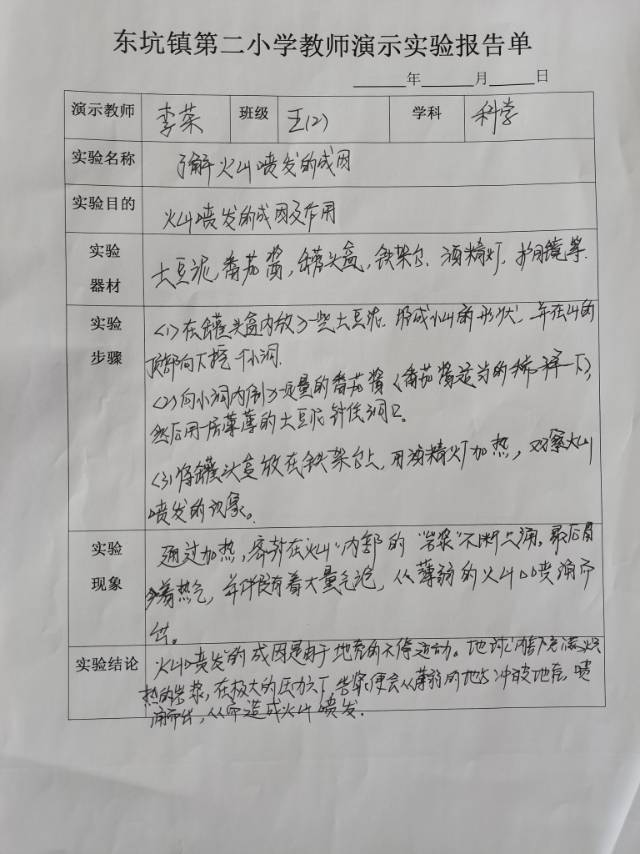 东坑镇第二小学教师演示实验报告单
年 月 日
演示教师 李荣 班级 五(2) 学科 科学
实验名称 了解火山喷发的成因
实验目的 火山喷发的成因及作用
实验器材 土豆泥,番茄酱,罐头盒,铁架台.酒精灯,护目镜等.
实验步骤 <1>在罐头盒内放入一些土豆泥.形成山的形状,并在山的
顶部向下挖一个小洞.
<2>向小洞内倒入一定量的番茄酱(番茄酱适当的稀释一下),
然后用一层薄薄的土豆泥封住洞口。
<3>将罐头盒放在铁架台上,用酒精灯加热,观察火山
喷发的现象。
实验现象 通过加热,密封在"火山"内部的"岩浆"不断上涌,最后冒
着热气,并伴有着大量气泡,从薄弱的火山口喷涌而
出。
实验结论 火山喷发的成因是由于地壳的不停运动。地
热的岩浆,在极大的压力下,岩浆便会从薄弱的地方冲破地壳,喷
涌而出,从而造成火山喷发.